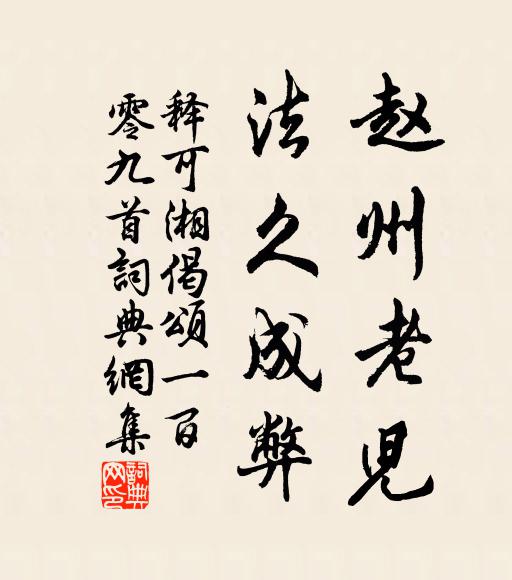 赵州老児
法久成弊
释可湘偈颂一百
零九首詞典網集
詞典网印